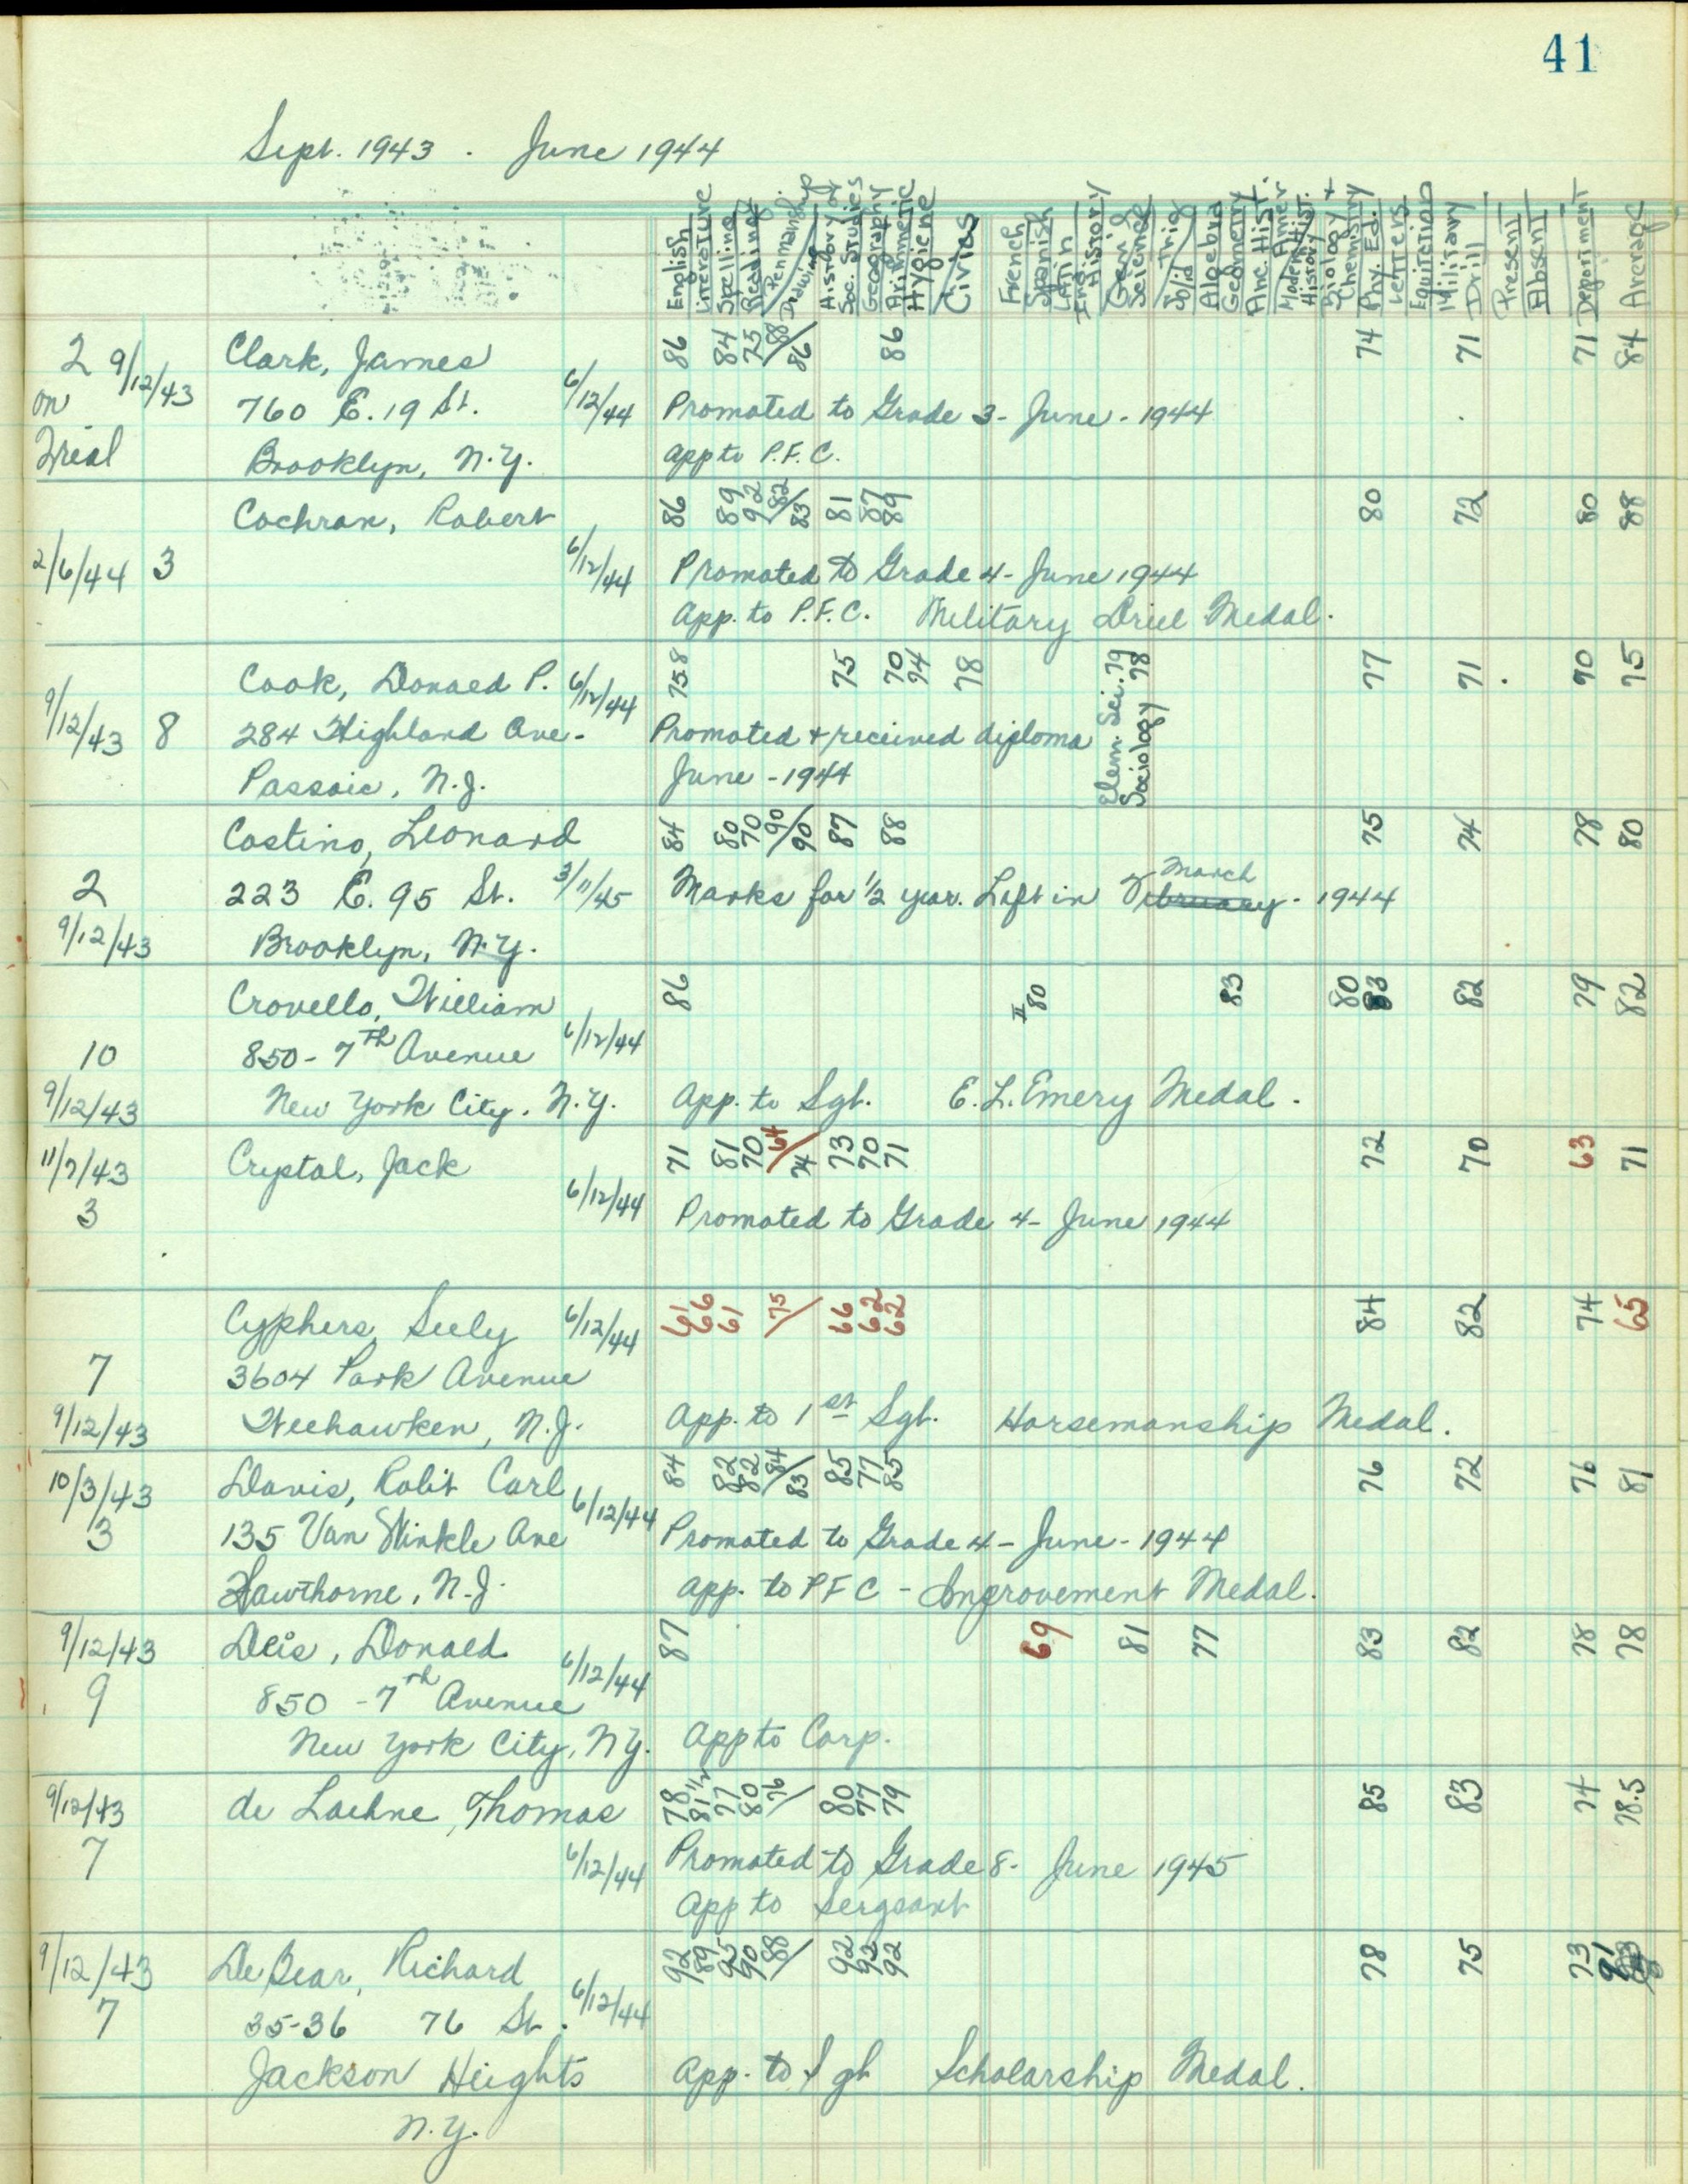 41
Sept. 1943 . June 1944
English
Literature
Spelling
Reading
Penmanship
Drawing
History or
Soc. Studies
Geography
Arithmetic
Hygiene
Civics
French
Spanish
Latin
Eng. History
Gen'l Science
Solid Trig
Algebra
Geometry
Anc. Hist.
Amer
Modern Hist.
History
Biology +
Chemistry
Phy. Ed.
Letters
Equition
Military
Drill
Present
Absent
Deportment
Average
2 9/12/43 Clark, James 86 84 75 88/86 86 74 71 71 84
on 760 E. 19 St. 6/12/44 Promoted to Grade 3 - June - 1944
Trial Brooklyn, N.Y. App to P.F.C.
Cochran, Robert 86 89 92 82/83 81 87 89 80 72 80 88
2/6/44 3 6/12/44 Promoted to Grade 4 - June 1944
App. to P.F.C. Military Drill Medal.
Cook, Donald P. 6/12/44 75.8 75 70 74 78 Elem. Sci. 79 Sociology 78 77 71 70 75
9/12/43 8 284 Highland Ave. Promoted + received diploma
Passaic, N.J. June - 1944
Costino, Leonard 84 80 70 90/90 87 88 75 74 78 80
2 223 E. 95 St. 3/11/45 Marks for 1/2 year. Left in February March - 1944
9/12/43 Brooklyn, N.Y.
Crovello, William 86 II 80 83 80 83 82 79 82
10 850 - 7th Avenue 6/12/44
9/12/43 New York City, N.Y. App. to Sgt. E.L. Emery Medal.
11/7/43 Crystal, Jack 71 81 70 64/74 73 70 71 72 70 63 71
3 6/12/44 Promoted to Grade 4 - June 1944
Cyphers, Seely 6/12/44 61 66 61 75/ 66 62 62 84 82 74 65
7 3604 Park Avenue
9/12/43 Weehawken, N.J. App. to 1st Sgt. Horsemanship Medal.
10/3/43 Davis, Rob't Carl 6/12/44 84 82 82 84/83 85 77 85 76 72 76 81
3 135 Van Winkle Ave Promoted to Grade 4 - June - 1944
Hawthorne, N.J. App. to PFC - Improvement Medal.
9/12/43 Deis, Donald 6/12/44 87 69 81 77 83 82 78 78
9 850 - 7th Avenue
New York City, N.Y. App to Corp.
9/12/43 de Laehne, Thomas 78 81 1/2 77 80 76/ 80 77 79 85 83 74 78.5
7 6/12/44 Promoted to Grade 8 - June 1945
App to Sergeant
9/12/43 De Bear, Richard 92 89 95 90 88/ 92 92 92 78 75 73 91
7 35-36 76 St. 6/12/44
Jackson Heights App. to Sgt Scholarship Medal.
N.Y.